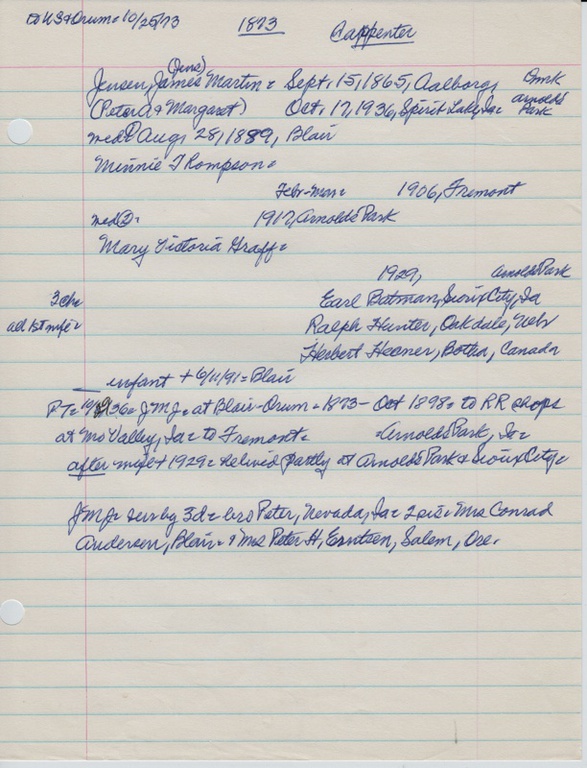 to US & Orum = 10/25/73 1873 Carpenter
(Jens)
Jensen, James Martin = Sept. 15, 1865, Aalborg, Dmk
(Peter A & Margaret) Oct. 17, 1936, Spirit Lake, Ia = Arnolds Park
med ① Aug. 28, 1889, Blair
Minnie Thompson =
Febr-Mar = 1906, Fremont
med ② = 1917, Arnolds Park
Mary Victoria Graff =
1929, Arnolds Park
3 chr Earl Batman, Sioux City, Ia
all 1st wife = Ralph Hunter, Oakdale, Nebr
Herbert Hecner, Botha, Canada
infant + 6/11/91 = Blair
PT = 10/29/36 = JMJ = at Blair-Orum = 1873 - Oct 1898 = to RR shops
at Mo Valley, Ia = to Fremont = = Arnolds Park, Ia =
after wife + 1929 = he lived partly at Arnolds Park & Sioux City =
JMJ = surv by 3 d = bro Peter, Nevada, Ia = 2 sis = Mrs Conrad
Andersen, Blair = & Mrs Peter H, Salem, Ore.